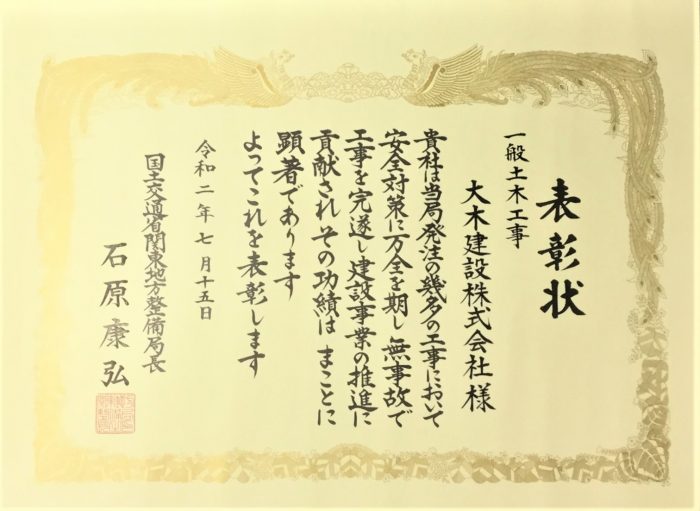 表彰状
一般土木工事
大木建設株式会社様
貴社は当局発注の幾多の工事において
安全対策に万全を期し無事故で
工事を完遂し建設事業の推進に
貢献されその功績はまことに
顕著であります
よってこれを表彰します
令和二年七月十五日
国土交通省関東地方整備局長
石原康弘